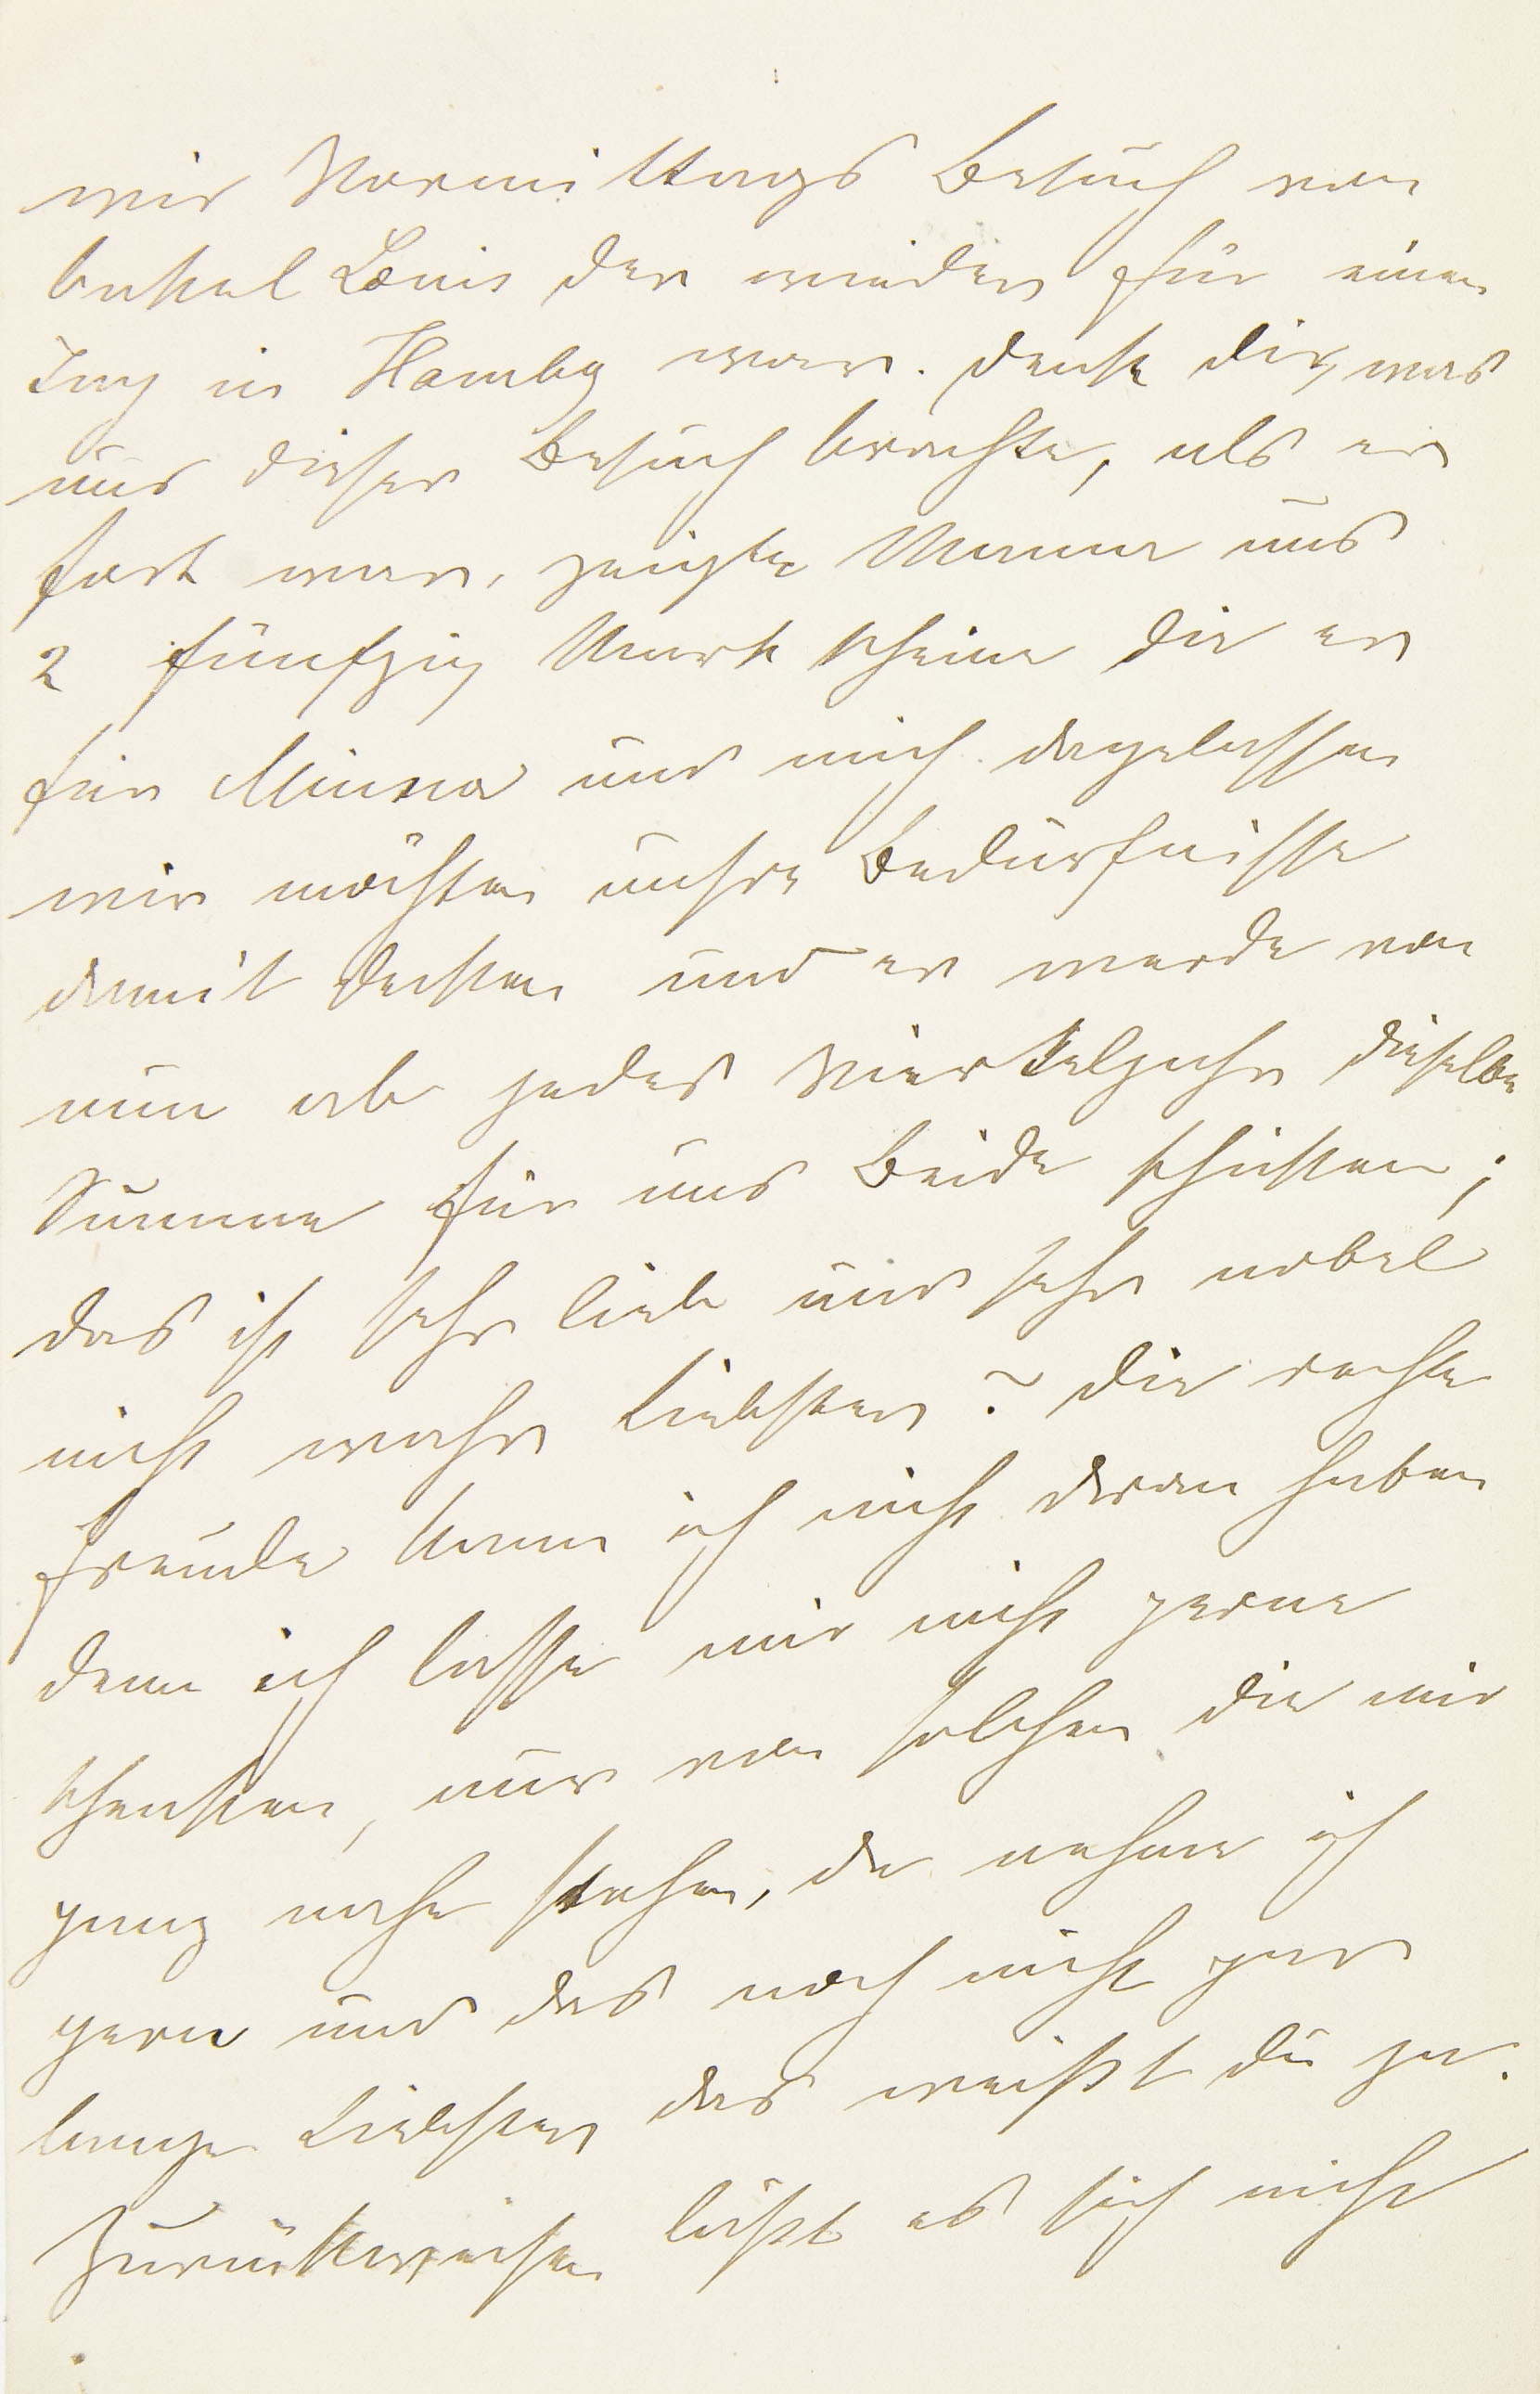 wir Vormittags Besuch von
Onkel Louis der wieder für einen
Tag in Hambg war. Denke Dir, was
uns dieser Besuch brachte, als er
fort war, zeigte Mama uns
2 fünfzig Mark scheine die er
für Minna und mich dagelassen
wir möchten unsre Bedürfnisse
damit decken und er werde von
nun ab jedes Vierteljahr dieselbe
Summe für uns Beide schicken;
das ist sehr lieb und sehr nobel
nicht wahr Liebster? Die rechte
Freude kann ich nicht daran haben
denn ich lasse mir nicht gerne
schenken, nur von solchen die mir
ganz nahe stehen, da nehme ich
gern und das noch nicht gar
lange Liebster das weißt Du ja.
Zurückweisen läßt es sich nicht